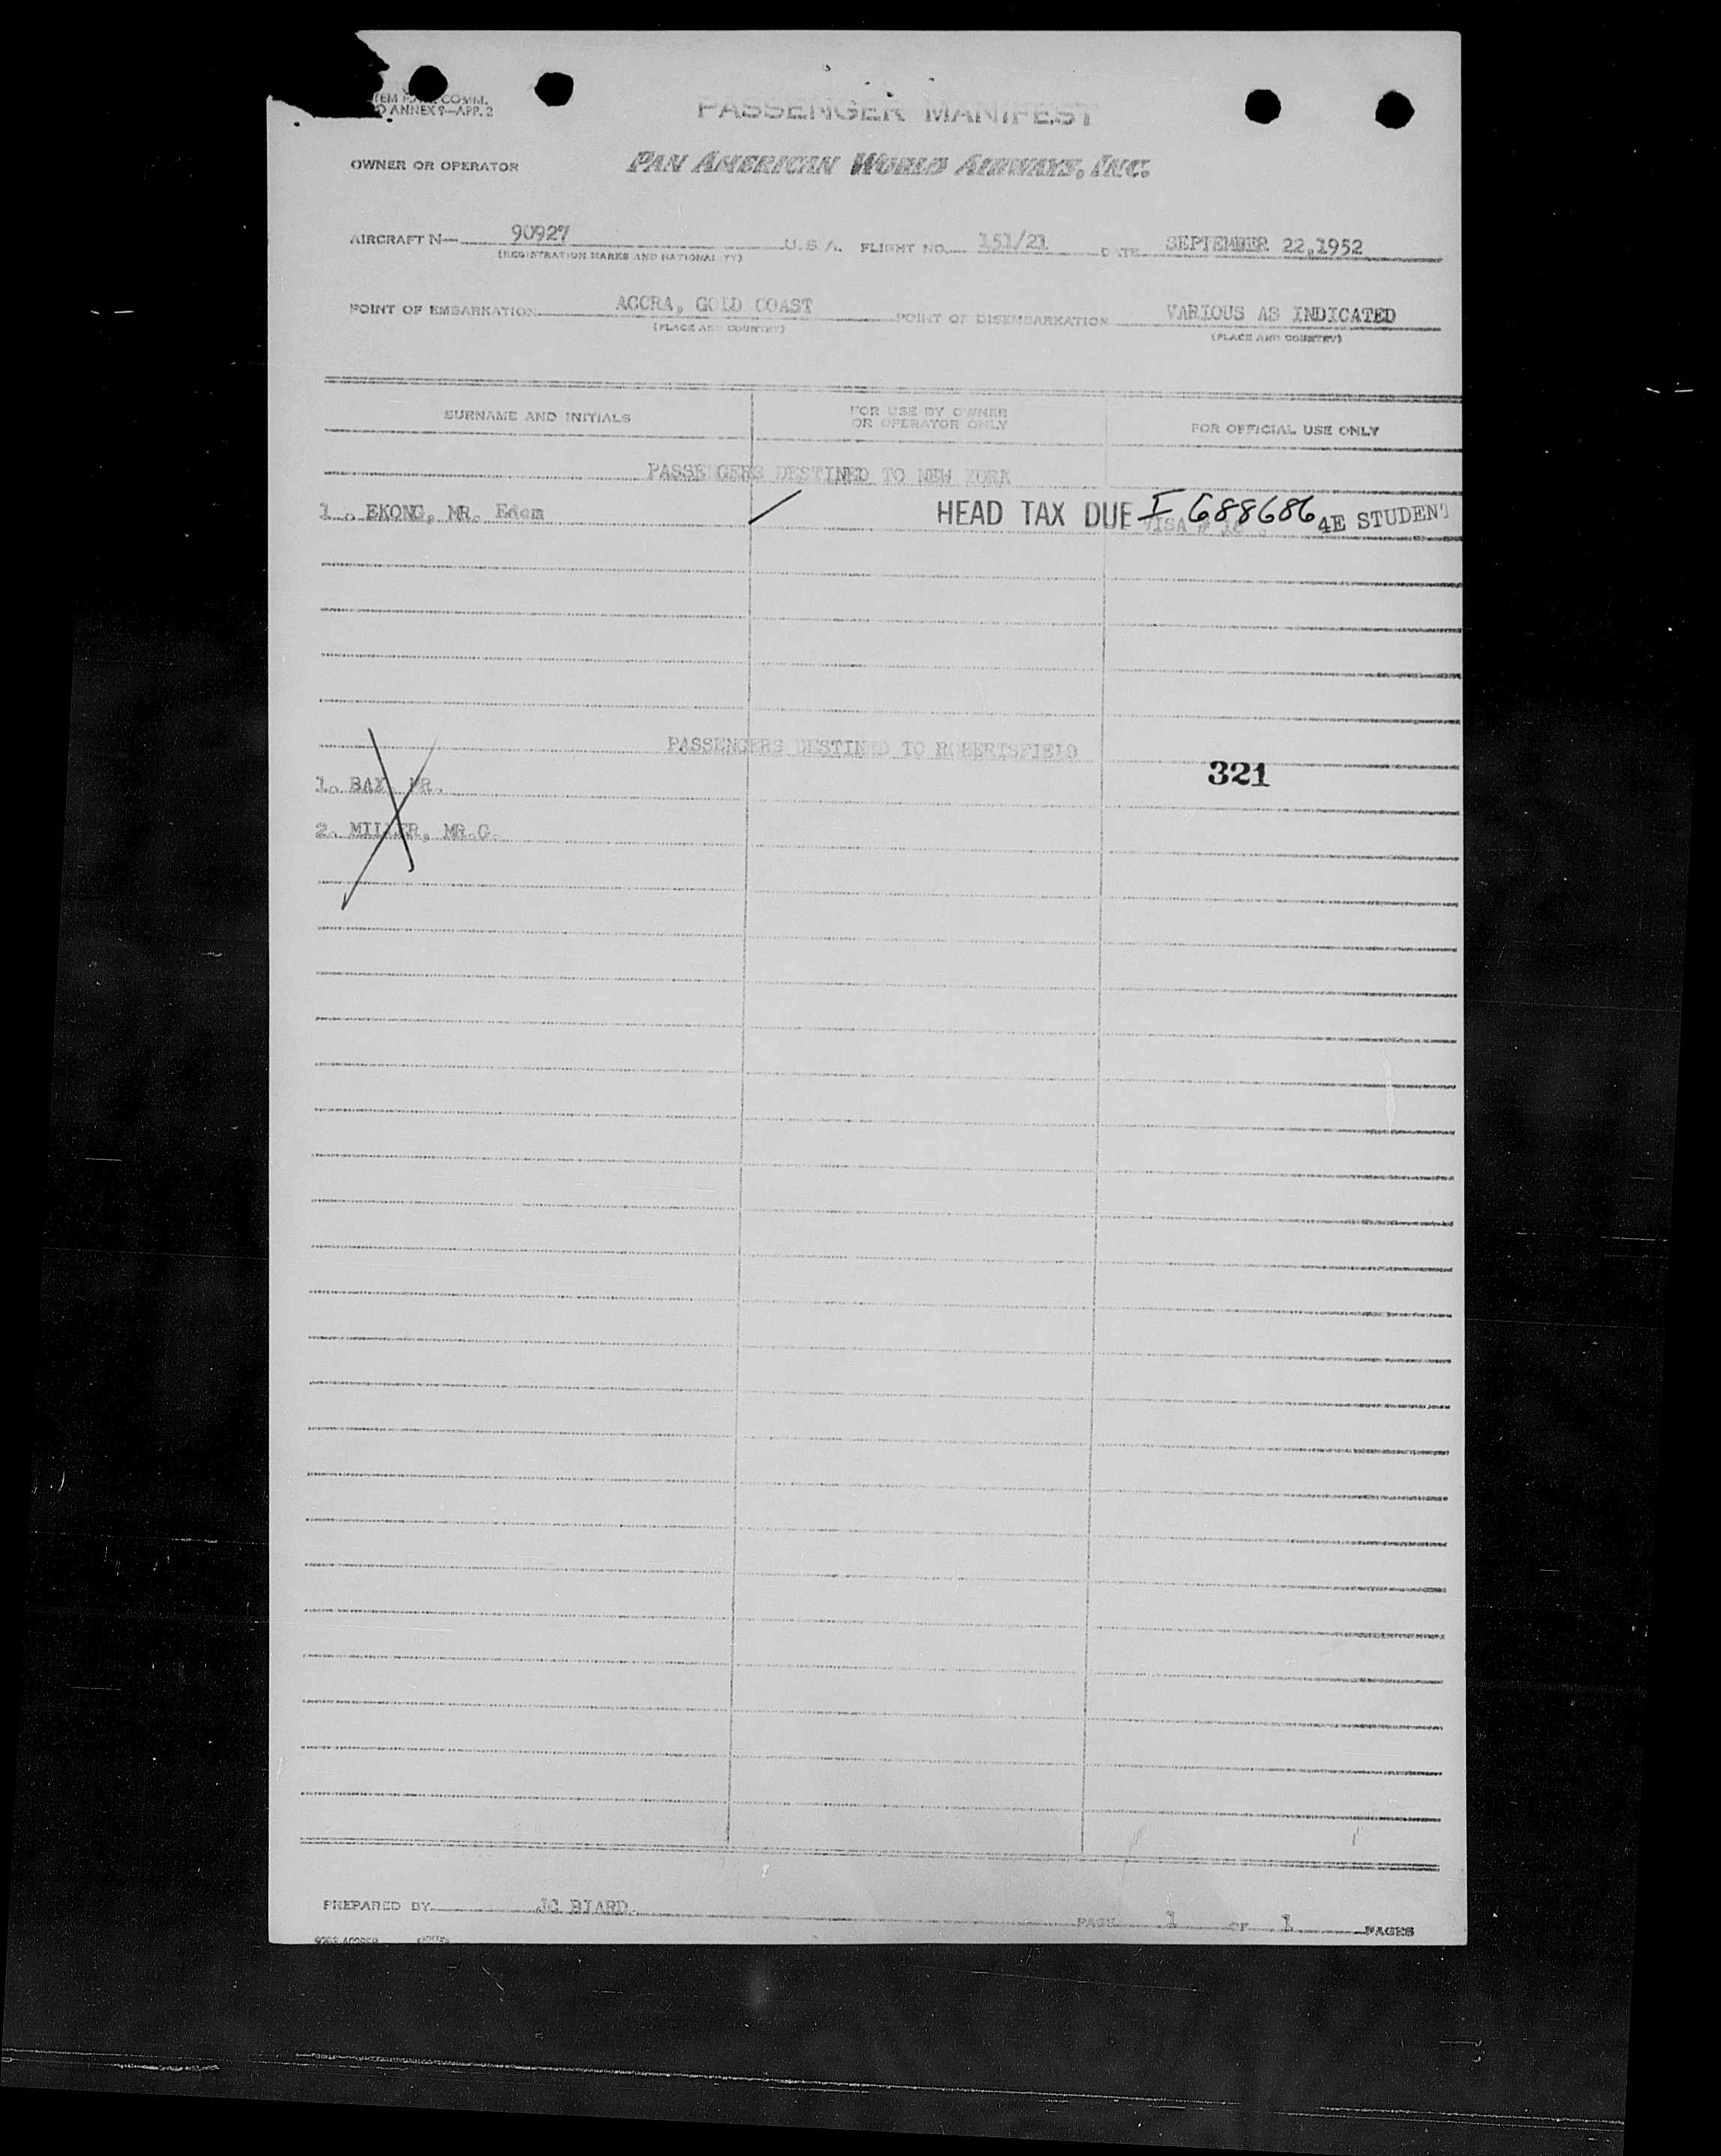 COMM.
ANNEX 9—APP. 2
PASSENGER MANIFEST
OWNER OR OPERATOR PAN AMERICAN WORLD AIRWAYS, INC.
AIRCRAFT N— 90927 U.S.A. FLIGHT NO. 151/21 DATE SEPTEMBER 22,1952
(REGISTRATION MARKS AND NATIONALITY)
POINT OF EMBARKATION ACCRA, GOLD COAST POINT OF DISEMBARKATION VARIOUS AS INDICATED
(PLACE AND COUNTRY) (PLACE AND COUNTRY)
SURNAME AND INITIALS FOR USE BY OWNER OR OPERATOR ONLY FOR OFFICIAL USE ONLY
PASSENGERS DESTINED TO NEW YORK
1. EKONG, MR. Edem / HEAD TAX DUE I 688686 4E STUDENT
VISA #
PASSENGERS DESTINED TO ROBERTSFIELD
321
1. MR.
2. MILLER, MR.G.
PREPARED BY JC BIARD. PAGE 1 OF 1 PAGES